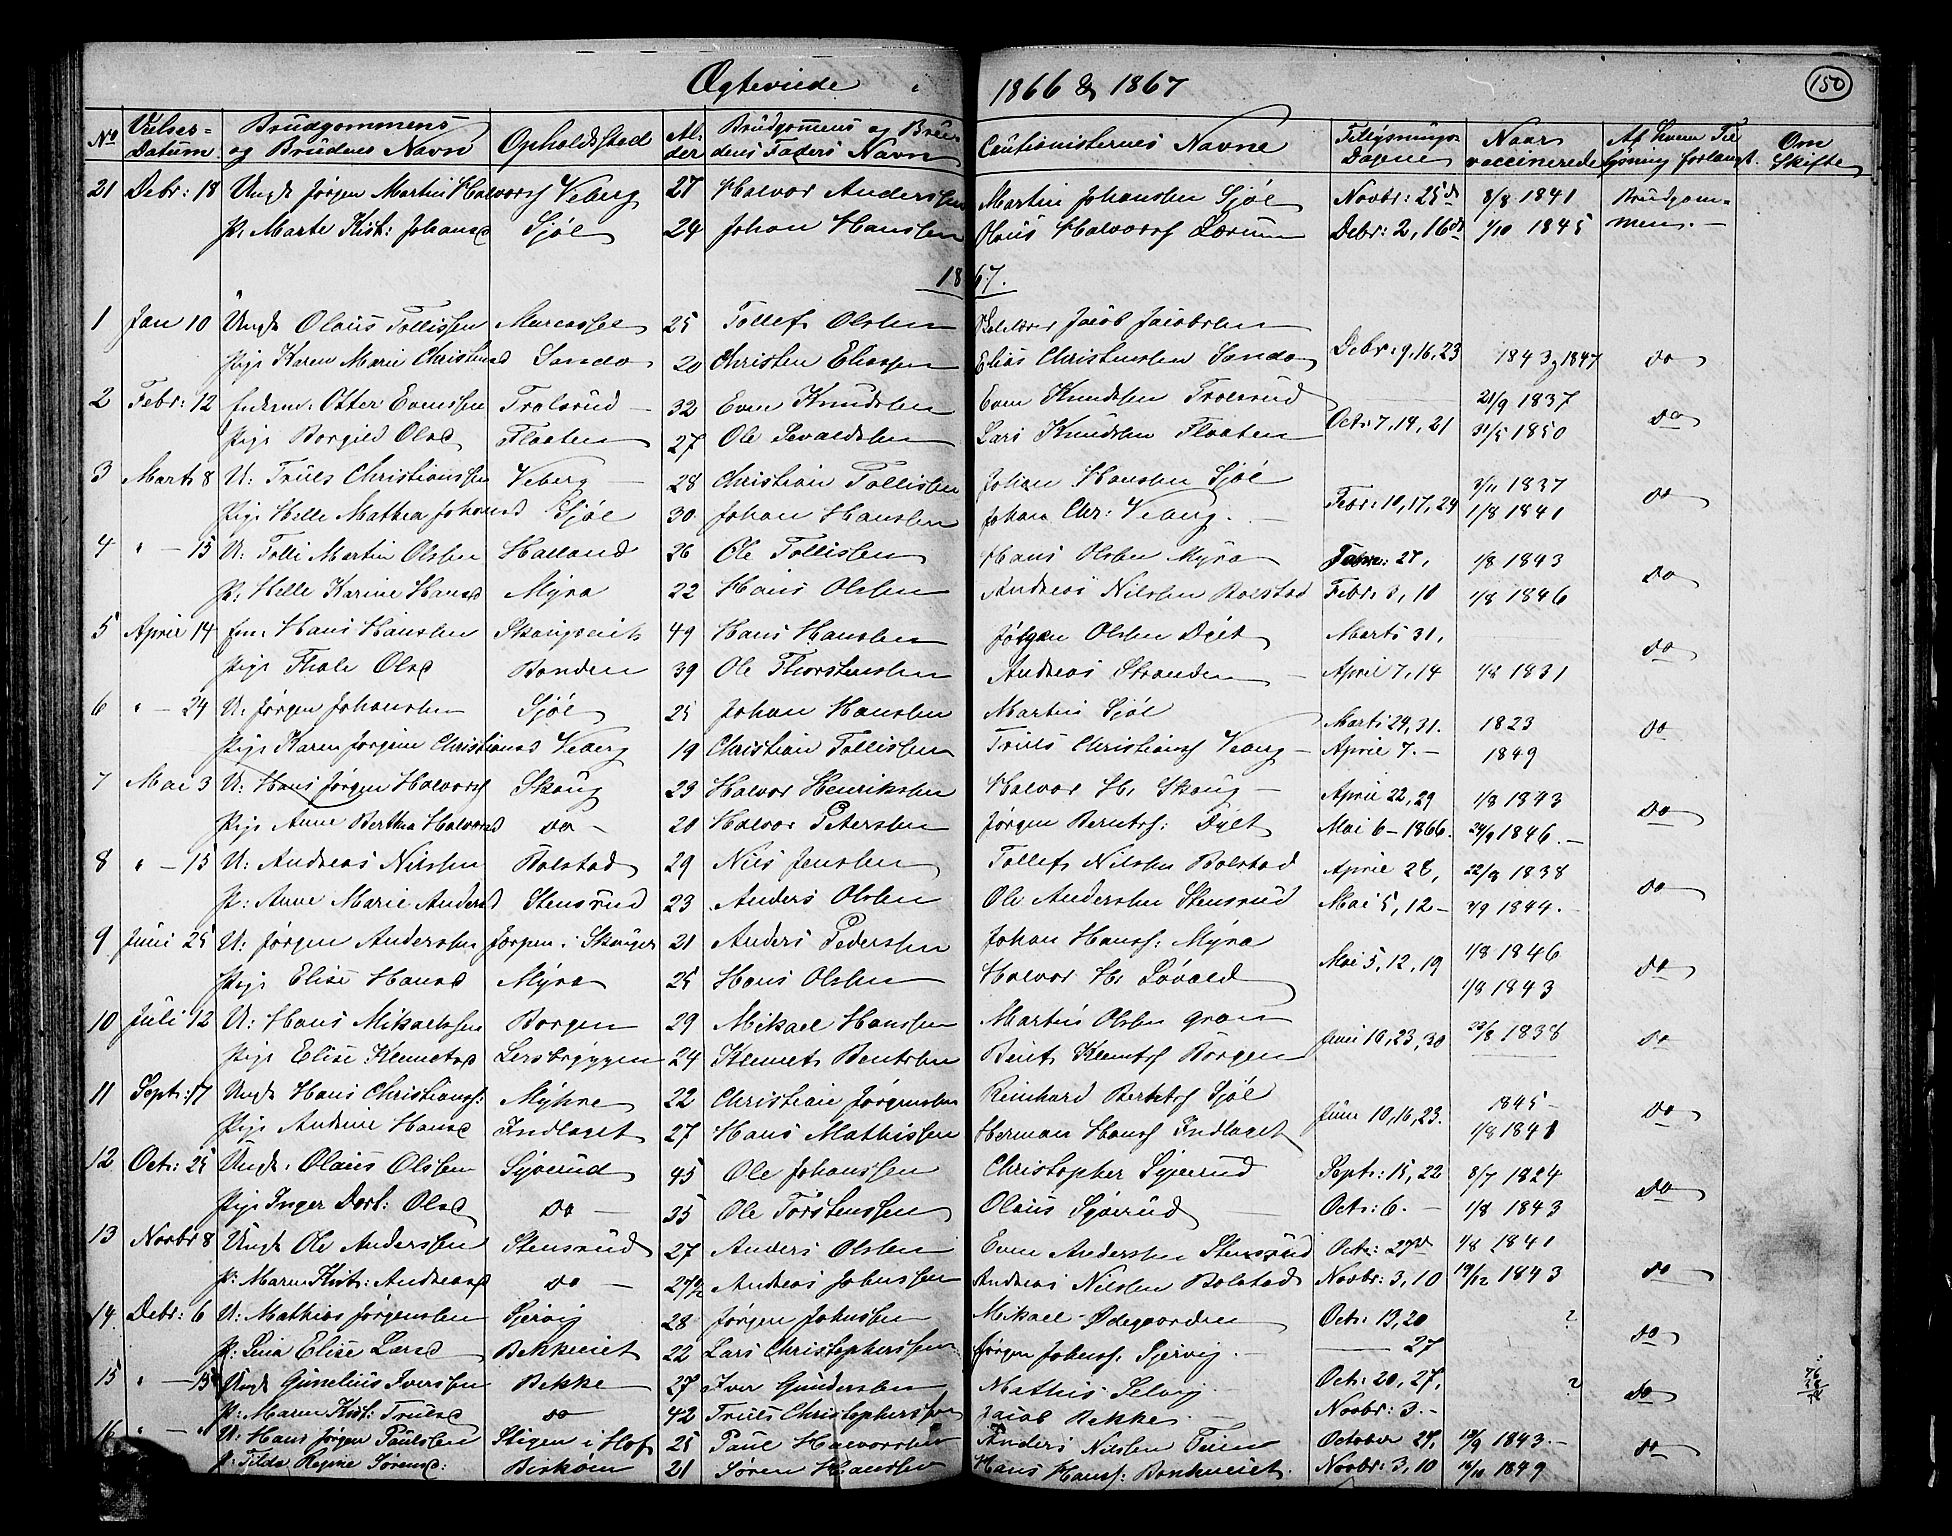 Ægteviede i 1866 & 1867
150
No Vielses= Datum Brudgommens og Brudens Navn Opholdsted Al= der Brudgommens og Bru= dens Faders Navn Cautionisternes Navne Tillysnings= Dagene Naar vaccinerede Af hvem Til= lysning forlangt. Om Skifte
21 Debr: 18 Ungk Jørgen Martin Halvors Veberg 27 Halvor Anderssen Martin Johanssen Sjøl Novbr: 25de 8/8 1841 Brudgom=
P: Marte Krist: Johansd Sjøl 24 Johan Hanssen Olaus Halvors Lerum Debr: 2, 16de 1/10 1845 men.
1867.
1 Jan 10 Ungk Olaus Tollissen 25 Tollef Olssen Jacob Jacobsen
Pige Karen Marie Christensd Sando 20 Christen Eliassen Elias Christenssen Sando Debr: 9, 16, 23 1843 & 1847 do
2 Febr: 12 Enkem: Otter Evenssen Trolsrud 32 Even Knudssen Even Knudssen Trolsrud 21/9 1837
Pige Borgild Olsd Flaaten 27 Ole Sevaldssen Lars Knudssen Flaaten Oct: 7, 14, 21 31/5 1850 do
3 Marts 8 U: Truls Christianssen Veberg 28 Christian Tollissen Johan Hanssen Sjøl 3/11 1837
Pige Helle Mathea Johansd Sjøl 30 Johan Hanssen Johan Chr: Veberg. Febr: 10, 17, 24 1/8 1841 do
4 " 15 U: Tolli Martin Olssen Haland 26 Ole Tollissen Hans Olssen Myra 27, 1/8 1843
P: Helle Karine Hansd Myra 22 Hans Olssen Andreas Nilssen Bolstad Febr: 3, 10 1/8 1846 do
5 April 14 Em: Hans Hanssen 49 Hans Hanssen Jørgen Olssen Døli Marts 31,
Pige Thale Olsd Bonden 39 Ole Thorstenssen Andreas Stranden April 7, 14 1/8 1831 do
6 " 24 U: Jørgen Johanssen Sjøl 25 Johan Hanssen Martin Sjøl Marts 24, 31. 1823
Pige Karen Jørgine Christiansd Veberg 19 Christian Tollissen Truls Christians Veberg April 7. 1849 do
7 Mai 3 U: Hans Jørgen Halvors Skoug 23 Halvor Henrikssen Halvor H. Skoug April 22, 29 1/8 1843
Pige Anne Bertha Halvorsd do 20 Halvor Peterssen Jørgen Berntss: Døli Mai 6 1866. 24/9 1846. do
8 " 15 U: Andreas Nilssen Bolstad 29 Nils Jenssen Tollef Nilssen Bolstad April 28, 22/8 1838
P: Anne Marie Andersd Stensrud 23 Anders Olssen Ole Anderssen Stensrud Mai 5, 12 1844. do
9 Juni 25 U: Jørgen Anderssen i Skouger 21 Anders Pederssen Johan Hanss: Myra 1/8 1846
Pige Elise Hansd Myra 25 Hans Olssen Halvor H. Løvald Mai 5, 12, 19 1/8 1843 do
10 Juli 12 U: Hans Mikaelssen Borgen 29 Mikael Hanssen Martin Olssen Gran 22/8 1838
Pige Elise Klemetsd Lersbryggen 24 Klemet Bentssen Bent Klemts Borgen Juni 16, 23, 30 do
11 Sept: 17 Ungk Hans Christianss: Myhre 22 Christian Jørgenssen Reinhard Berntss Sjøl 1845
Pige Andrine Hansd Indlaget 27 Hans Mathissen Herman Hanss Indlaget Juni 10, 16, 23. 1/8 1841 do
12 Oct: 25 Ungk: Olaus Olssen Sjverud 45 Ole Johanssen Christopher Sjverud Sept: 15, 22 8/7 1824
Pige Inger Dort: Olsd do 35 Ole Torstenssen Olaus Sjverud Oct: 6. 1/8 1843 do
13 Novbr 8 Ungk Ole Anderssen Stensrud 27 Anders Olssen Even Anderssen Stensrud Oct: 27de 1/8 1841
P: Maren Krist: Andreasd do 27½ Andreas Johnssen Andreas Nilssen Bolstad Novbr: 3, 10 19/12 1843 do
14. Debr: 6 U: Mathias Jørgenssen Sjervig 28 Jørgen Johnssen Mikael Ødegaarden Oct: 13, 20 ?
P: Lina Elise Larsd Bekkeviet 22 Lars Christopherssen Jørgen Johnss: Sjervig. 27 do
15 " 15 Ungk Gunelius Iverssen Bekke 27 Iver Gunderssen Mathis Selvig Oct: 20, 27, ? do
P: Maren Krist: Trulsd do 42 Truls Christopherssen Jacob Bekke Novbr: 3.
16 " " U: Hans Jørgen Paulssen Stigen i Hof 25 Paul Halvorssen Anders Nilssen October 27, 19/9 1843.
P: Tilda Regine Sørensd: Biskom 21 Søren Hanssen Hans Hanss: Novbr: 3, 10 16/10 1849 do